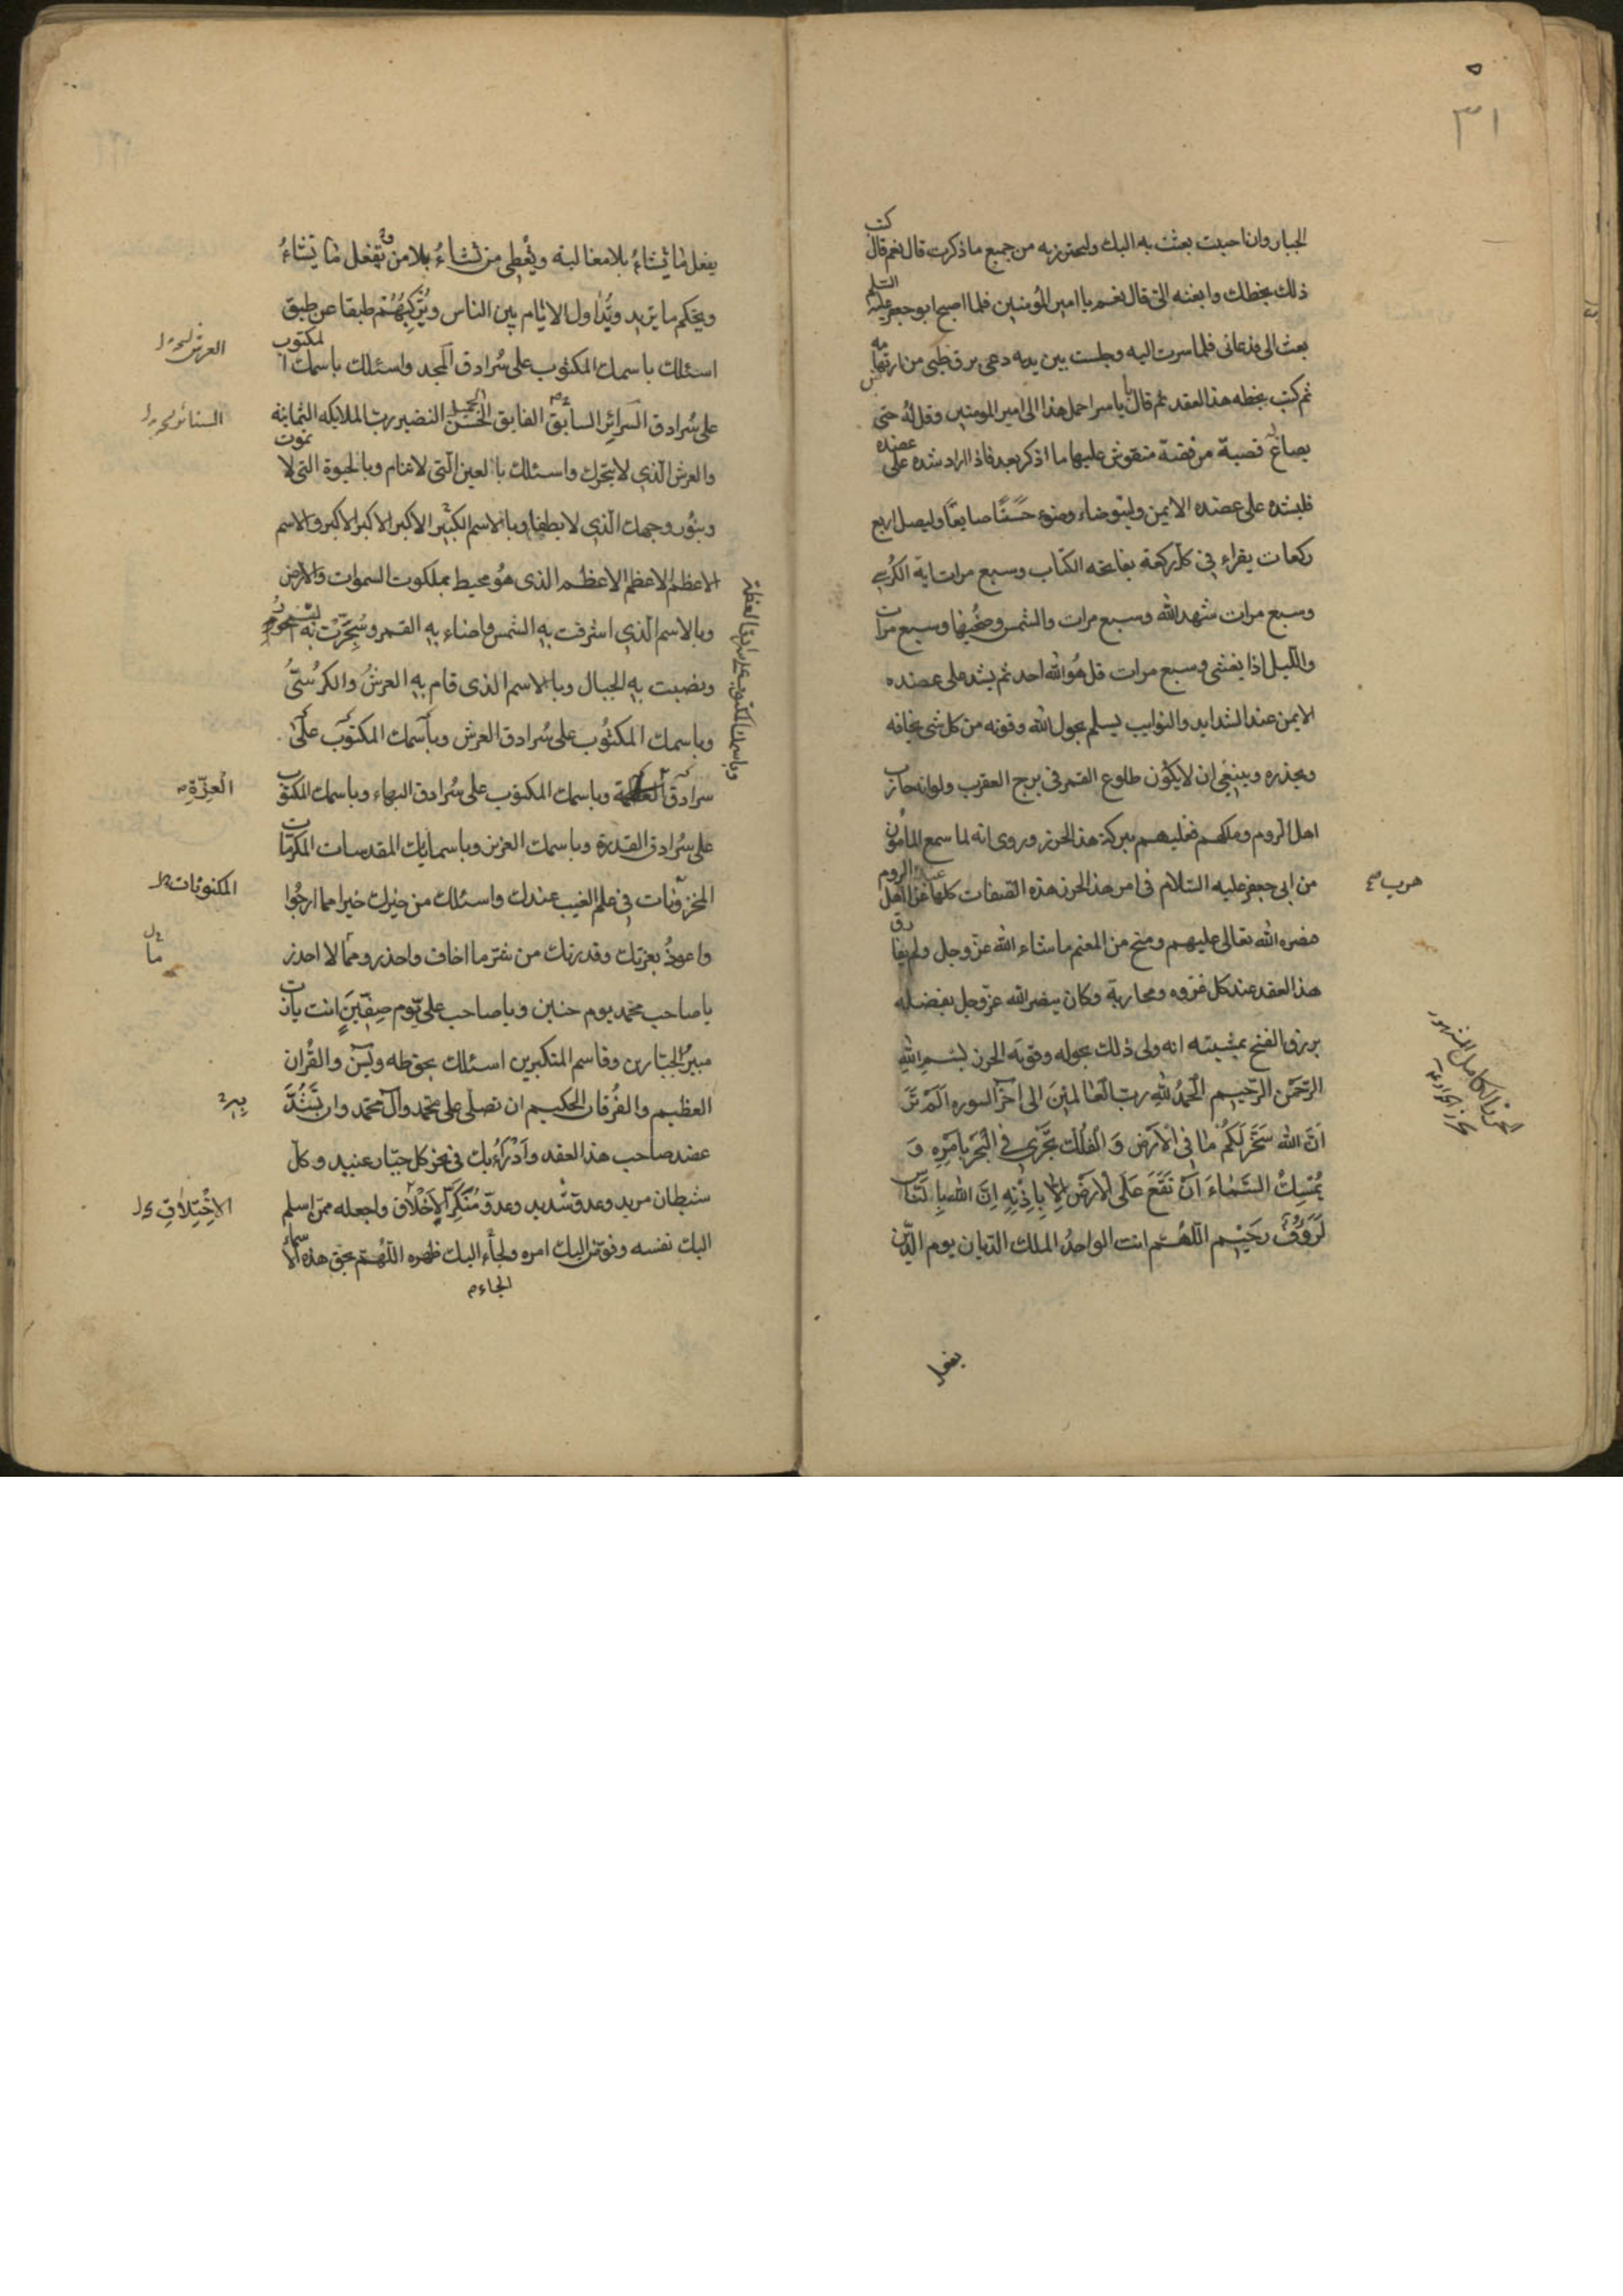 ٣١
الجبار وانا حببت بعثت به اليك وليحترز به من جميع ما ذكرت قال نعم قال كتب
ذلك بخطك وابعثه الىّ قال نعم يا امير المؤمنين فلما اصبح ابو جعفر عليه السلم
بعث الى فدعانى فلما سرت اليه وجلست بين يديه دعى برق ظبى من ارض تهامه
ثم كتب بخطه هذا العقد ثم قال يا ياسر احمل هذا الى امير المومنين وقل له حتى
يصاغ له قصبة من فضة منقوش عليها ما اذكر بعد فاذا اراد شده على عضده
فليشده على عضده الايمن وليتوضاء وضوء حسنًا صابغًا وليصل اربع
ركعات يقراء فى كل ركعة بفاتحه الكتاب وسبع مرات اية الكرسى
وسبع مرات شهد الله وسبع مرات والشمس وضحيها وسبع مرات
والليل اذا يغشى وسبع مرات قل هو الله احد ثم يشد على عضده
الايمن عند الشدايد والنوايب يسلم بحول الله وقوته من كل شى يخافه
ويحذره وينبغى ان لا يكون طلوع القمر فى برج العقرب ولو انه حارب
اهل الروم وملكهم فغلبهم ببركة هذا الحرز وروى انه لما سمع المأمون
من ابى جعفر عليه السلام فى امر هذا الحرز هذه الصفات كلها غزا اهل الروم
حرب
فنصره الله تعالى عليهم ومنح من المغنم ما شاء الله عز وجل ولم يفارق
هذا العقد عند كل غزوه ومحاربة وكان ينصر الله عز وجل بفضله
يرزق الفتح بمشيته انه ولى ذلك بحوله وقوته الحرز بسم الله
الرحمن الرحيم الحمد لله رب العالمين الى آخر السوره الم تر
ان الله سخر لكم ما فى الارض و الفلك تجرى فى البحر بامره و
يمسك السماء ان تقع على الارض الا باذنه ان الله بالناس
لرؤف رحيم اللهم انت الواحد الملك الديان يوم الدين
يفعل
يفعل ما يشاء بلا مغالبة ويعطى من تشاء بلا من وتفعل ما يشاء
ويحكم ما يريد ويداول الايام بين الناس ويركبهم طبقا عن طبق
اسئلك باسمك المكتوب على سرادق المجد واسئلك باسمك المكتوب
على سرادق السرائر السابق الفايق الحسن الجميل النضير رب الملايكه الثمانية
والعرش الذى لا يتحرك واسئلك بالعين التى لا تنام وبالحيوة التى لا تموت
وبنور وجهك الذى لا يطفا وبالاسم الكبير الاكبر الاكبر الاكبر والاسم
الاعظم الاعظم الاعظم الذى هو محيط بملكوت السموات والارض
وبالاسم الذى اشرقت به الشمس واضاء به القمر وسجرت به البحور
ونصبت به الجبال وبالاسم الذى قام به العرش والكرسى
وباسمك المكتوب على سرادق العرش وباسمك المكتوب على
سرادق العظمة وباسمك المكتوب على سرادق البهاء وباسمك المكتوب
العزة
على سرادق القدرة وباسمك العزيز وباسمايك المقدسات المكرمات
المخزونات فى علم الغيب عندك واسئلك من خيرك خيرا مما ارجوا
المكنونات
واعوذ بعزتك وقدرتك من شر ما اخاف واحذر ومما لا احذر
ما
يا صاحب محمد يوم حنين ويا صاحب على يوم صفين انت يا رب
مبير الجبارين وقاسم المتكبرين اسئلك بحق طه ويس والقران
العظيم والفرقان الحكيم ان تصلى على محمد وال محمد وان تشد
عضد صاحب هذا العقد وادراء بك فى نحر كل جبار عنيد وكل
شيطان مريد وعدو شديد وعدو منكر الاخلاق واجعله ممن اسلم
اليك نفسه وفوض اليك امره والجاء اليك ظهره اللهم بحق هذه الاسماء